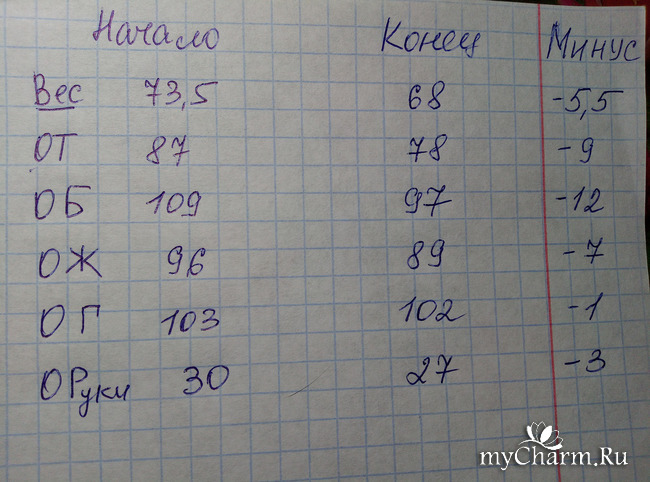 Начало Конец Минус
Вес 73,5 68 -5,5
ОТ 87 78 -9
ОБ 109 97 -12
ОЖ 96 89 -7
ОГ 103 102 -1
ОРуки 30 27 -3
myCharm.Ru